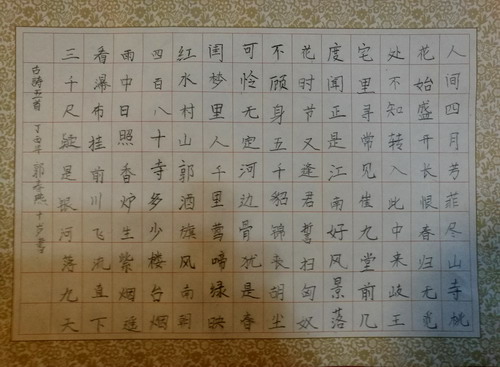 人间四月芳菲尽山寺桃
花始盛开长恨春归无觅
处不知转入此中来岐王
宅里寻常见崔九堂前几
度闻正是江南好风景落
花时节又逢君誓扫匈奴
不顾身五千貂锦丧胡尘
可怜无定河边骨犹是春
闺梦里人千里莺啼绿映
红水村山郭酒旗风南朝
四百八十寺多少楼台烟
雨中日照香炉生紫烟遥
看瀑布挂前川飞流直下
三千尺疑是银河落九天
古诗五首 丁酉年 郭